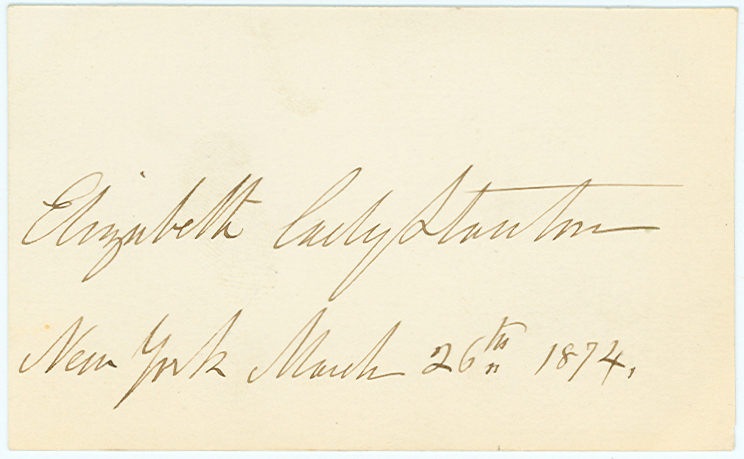 Elizabeth Cady Stanton
New York March 26th 1874.